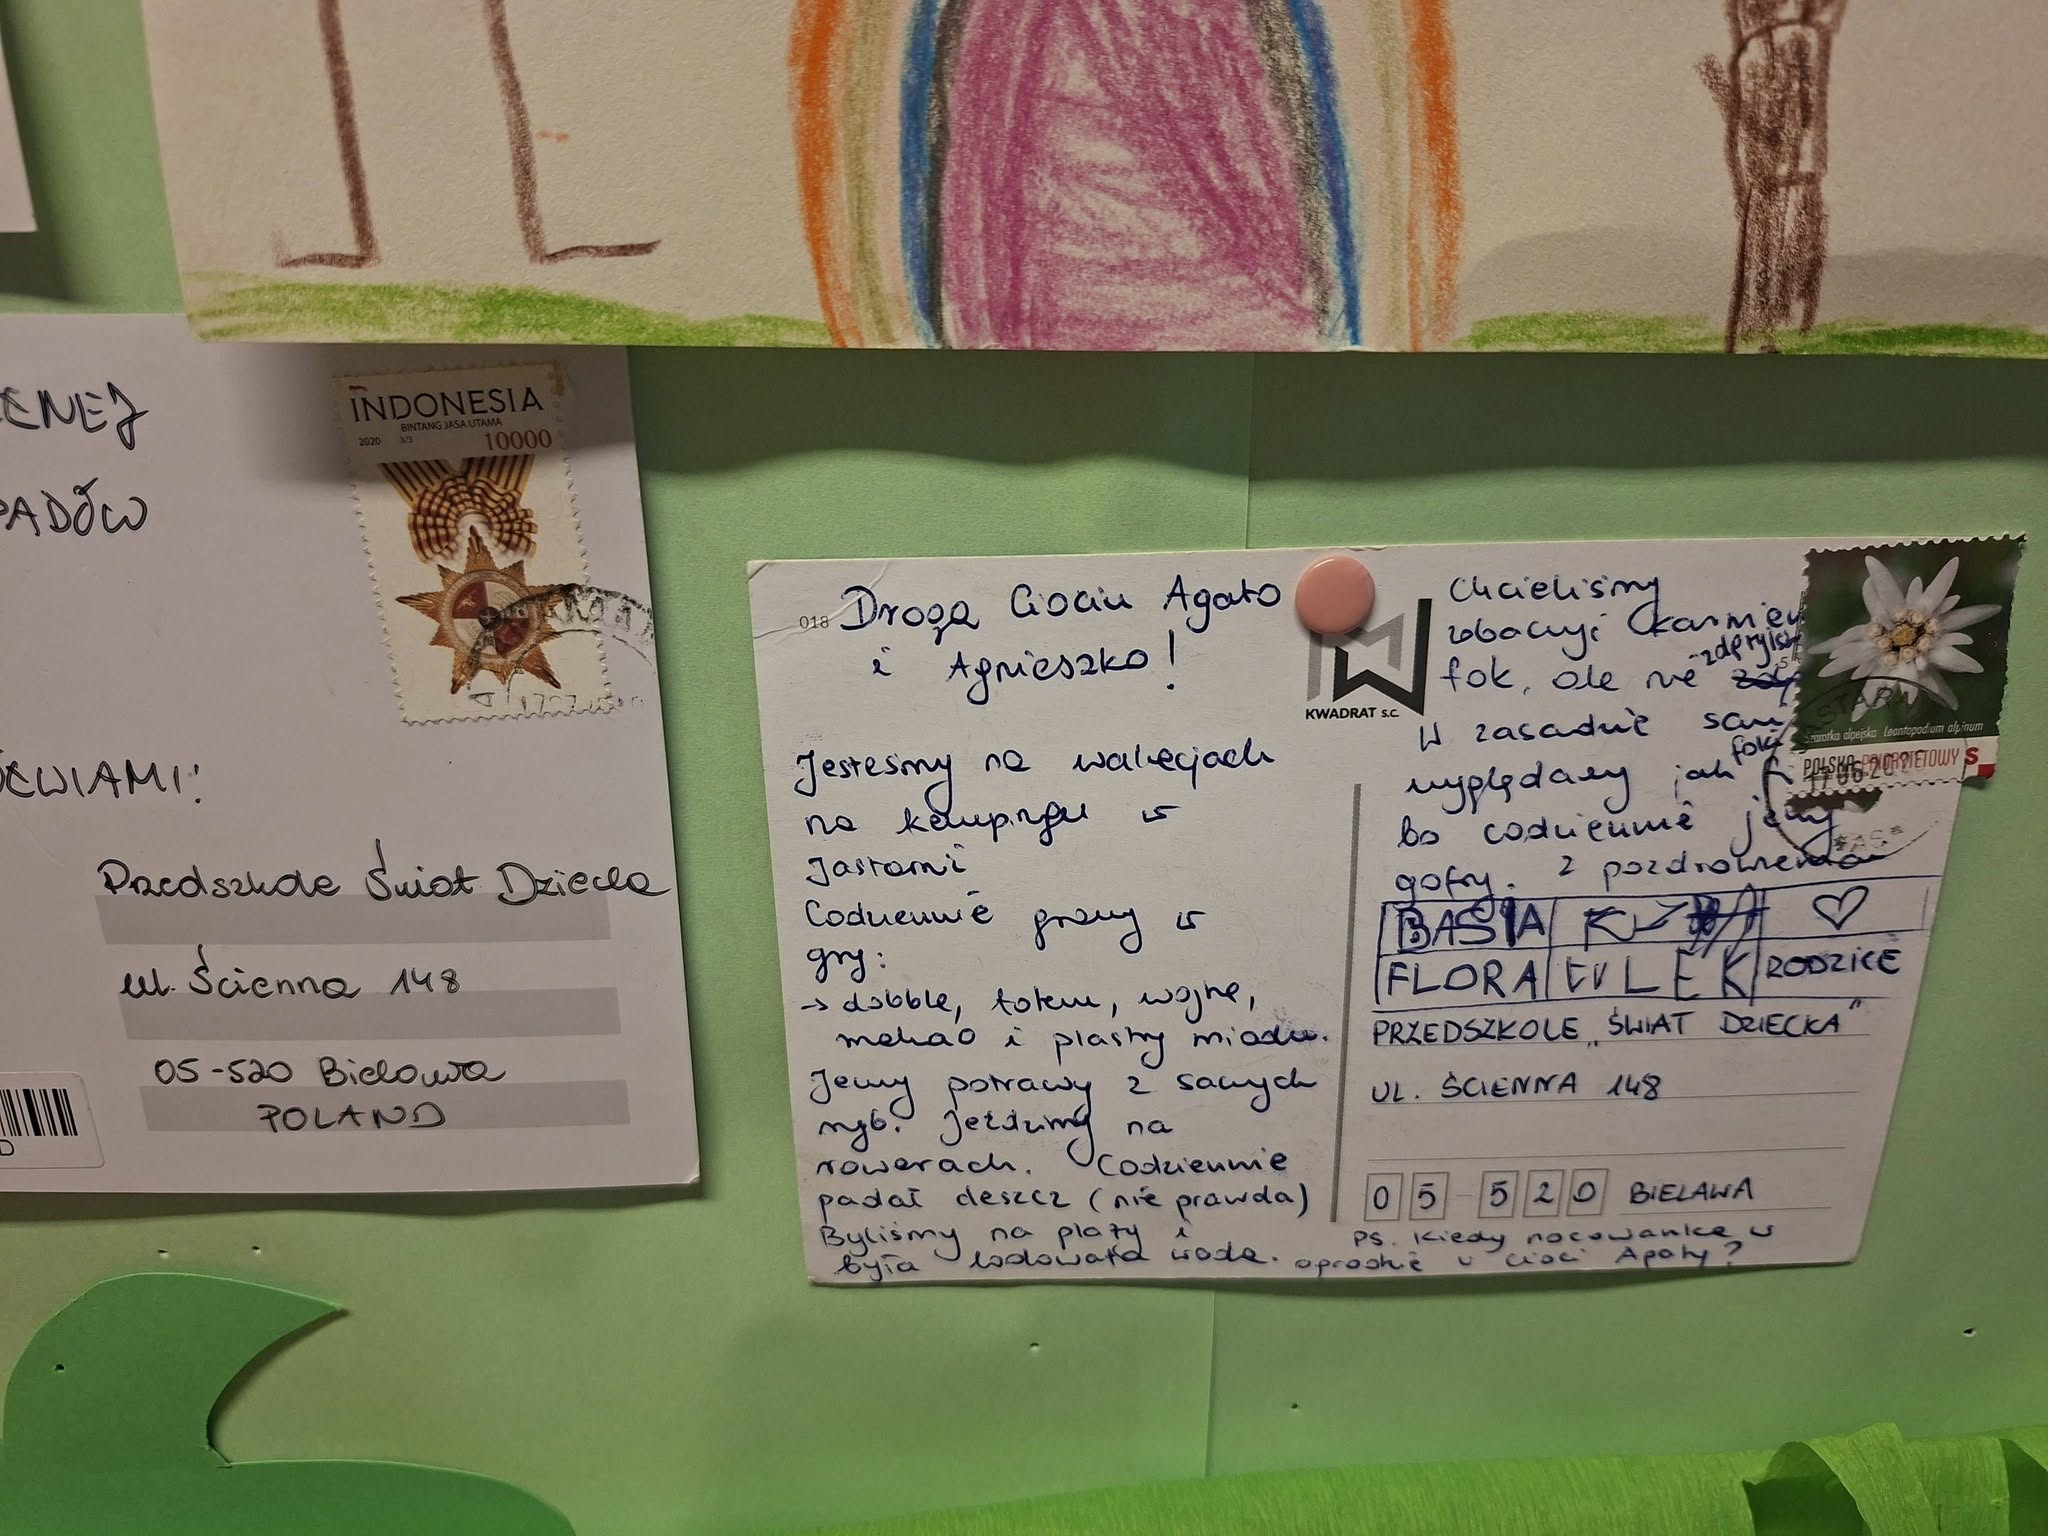 INDONESIA
BINTANG JASA UTAMA
2020 3/3 10000
PADÓW
Przedszkole Świat Dziecka
ul. Ścienna 148
05-520 Bielawa
POLAND
018
Drogą Ciociu Agato
i Agnieszko!
Jesteśmy na wakacjach
na kempingu w
Jastarni
Codziennie gramy w
gry:
→ dobble, totem, wojnę,
makao i plastry miodu.
Jemy potrawy z samych
ryb. Jeździmy na
rowerach. Codziennie
padał deszcz (nie prawda)
Byliśmy na plaży i
była lodowata woda.
KWADRAT S.C.
Chcieliśmy
zobaczyć karmienie
fok, ale nie
W zasadzie sami
wyglądamy jak foki
bo codziennie jemy
gofry. Z pozdrowieniami
BASIA
FLORA WLEK RODZICE
PRZEDSZKOLE „ŚWIAT DZIECKA"
UL. ŚCIENNA 148
05-520 BIELAWA
PS. Kiedy nocowanka w
ogrodzie u cioci Agaty?
Szarotka alpejska Leontopodium alpinum
POLSKA PRIORYTETOWY S